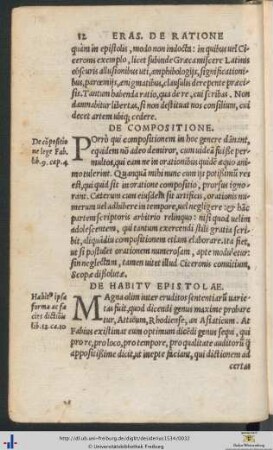 12 ERAS. DE RATIONE
quàm in epistolis, modo non indocta: in quibus uel Ci-
ceronis exemplo, licet subinde Græca miscere Latinis
obscuris allusionibus uti, amphibologijs, significationi-
bus, parœmijs, ænigmatibus, clausulis derepente præci-
sis. Tantum habenda ratio, qua de re, cui scribas. Non
damnabitur libertas, si non destituat nos consilium, cui
decet artem ubiq; cedere.
DE COMPOSITIONE.
De cōpositio
ne lege Fab.
lib. 9. cap. 4.
POrrò qui compositionem in hoc genere damnant,
equidem nō adeo demiror, cum uideā fuisse per-
multos, qui eam ne in orationibus quidē æquo ani-
mo tulerint. Quanquā mihi nunc cum ijs potissimū res
est, qui quid sit in oratione compositio, prorsus igno-
rant. Cæterum cum eiusdem sit artificis, orationis
numerum uel adhibere in tempore, uel negligere
partem scriptoris arbitrio relinquo: nisi quod uelim
adolescentem, qui tantum exercendi stili gratia scri-
bit, aliquando compositionem etiam elaborare. ita fiet,
ut si postulet orationem numerosam, apte moueatur:
sin neglectam, tamen uitet illud Ciceronis conuitium,
Scopæ dissolutæ.
DE HABITV EPISTOLAE.
Habitᵘˢ ipsa
forma ac fa-
cies dictiõis
lib. 12. ca. 10
MAgna olim inter eruditos sententiarū uarie-
tas fuit, quod dicendi genus maxime probare-
tur, Atticum, Rhodiense, an Asiaticum. At
Fabius existimat eum optimum dicēdi genus sequi, qui
pro re, pro loco, pro tempore, pro qualitate auditorū
appositissime dicit, at inepte faciant, qui dictionem ad
certas
http://dl.ub.uni-freiburg.de/diglit/desiderius1534/0032
© Universitätsbibliothek Freiburg